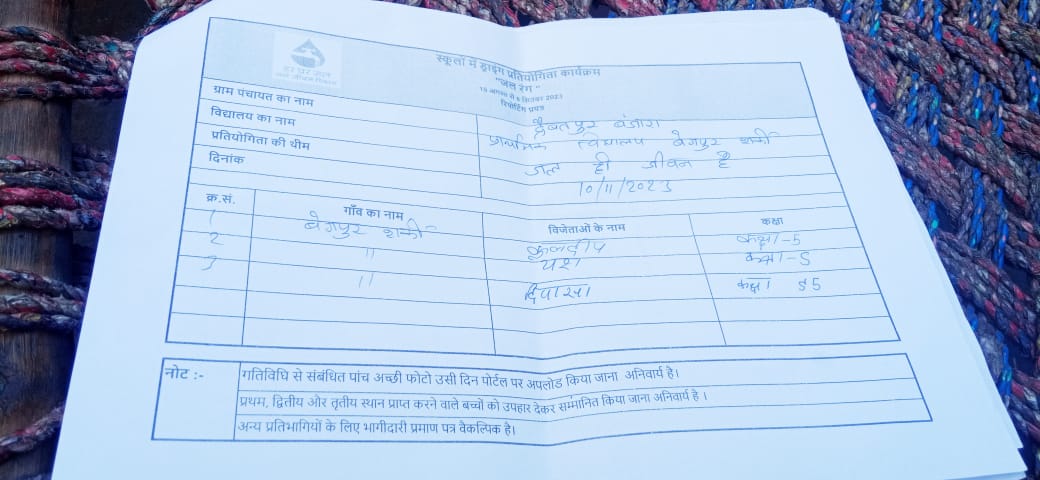 हर घर जल
जल जीवन मिशन
स्कूलों में ड्राइंग प्रतियोगिता कार्यक्रम
"जल रंग"
रिपोर्टिंग प्रपत्र
ग्राम पंचायत का नाम बंजारा
विद्यालय का नाम प्राथमिक विद्यालय बेगपुर शर्की
प्रतियोगिता की थीम जल ही जीवन है
दिनांक 10/11/2023
क्र.सं. गाँव का नाम विजेताओं के नाम कक्षा
1 बेगपुर शर्की कुलदीप कक्षा-5
2 " यश कक्षा-5
3 " कक्षा 5
नोट :- गतिविधि से संबंधित पांच अच्छी फोटो उसी दिन पोर्टल पर अपलोड किया जाना अनिवार्य है।
प्रथम, द्वितीय और तृतीय स्थान प्राप्त करने वाले बच्चों को उपहार देकर सम्मानित किया जाना अनिवार्य है।
अन्य प्रतिभागियों के लिए भागीदारी प्रमाण पत्र वैकल्पिक है।